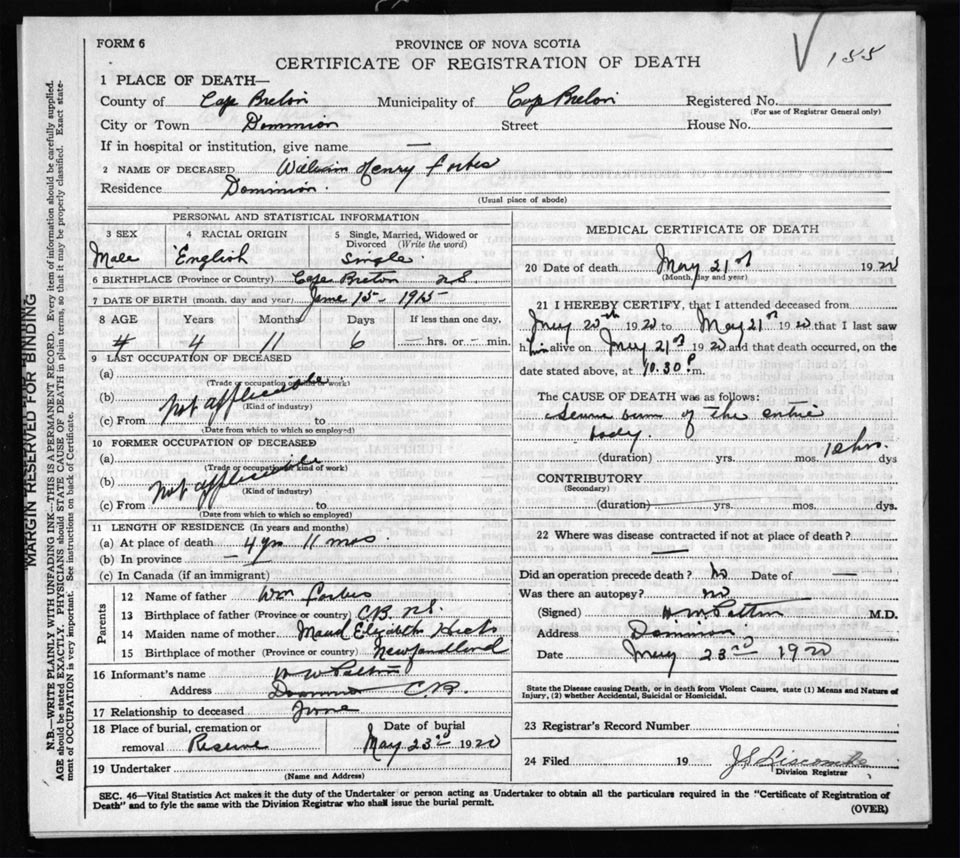 FORM 6
PROVINCE OF NOVA SCOTIA
CERTIFICATE OF REGISTRATION OF DEATH
155
1 PLACE OF DEATH—
County of Cape Breton Municipality of Cape Breton Registered No.
(For use of Registrar General only)
City or Town Dominion Street House No.
If in hospital or institution, give name —
2 NAME OF DECEASED William Henry Forbes
Residence Dominion.
(Usual place of abode)
PERSONAL AND STATISTICAL INFORMATION
3 SEX
Male
4 RACIAL ORIGIN
English
5 Single, Married, Widowed or Divorced (Write the word)
Single
6 BIRTHPLACE (Province or Country) Cape Breton NS
7 DATE OF BIRTH (month, day and year) June 15 - 1915
8 AGE Years Months Days If less than one day,
4 11 6 — hrs. or — min.
9 LAST OCCUPATION OF DECEASED
(a)
(Trade or occupation or kind of work)
(b) not applicable
(Kind of industry)
(c) From to
(Date from which to which so employed)
10 FORMER OCCUPATION OF DECEASED
(a)
(Trade or occupation or kind of work)
(b) not applicable
(Kind of industry)
(c) From to
(Date from which to which so employed)
11 LENGTH OF RESIDENCE (In years and months)
(a) At place of death 4 yrs 11 mos.
(b) In province —
(c) In Canada (if an immigrant)
Parents
12 Name of father Wm Forbes
13 Birthplace of father (Province or country) C.B. N.S.
14 Maiden name of mother. Maud Elizabeth Hicks
15 Birthplace of mother (Province or country) Newfoundland
16 Informant's name
Address Dominion C.B.
17 Relationship to deceased None
18 Place of burial, cremation or removal Reserve
Date of burial
May 23rd 1920
19 Undertaker
(Name and Address)
MEDICAL CERTIFICATE OF DEATH
20 Date of death May 21st 1920
(Month, day and year)
21 I HEREBY CERTIFY, that I attended deceased from
May 20th 1920 to May 21st 1920 that I last saw
him alive on May 21st 1920 and that death occurred, on the
date stated above, at 10.30 P. m.
The CAUSE OF DEATH was as follows:
Severe burn of the entire
body.
(duration) yrs. mos. hrs. dys
CONTRIBUTORY
(Secondary)
(duration) yrs. mos. dys.
22 Where was disease contracted if not at place of death?
—
Did an operation precede death? No Date of —
Was there an autopsy? no
(Signed) M.D.
Address Dominion
Date May 23rd 1920
State the Disease causing Death, or in death from Violent Causes, state (1) Means and Nature of
Injury, (2) whether Accidental, Suicidal or Homicidal.
23 Registrar's Record Number
24 Filed 19 J S Liscombe
Division Registrar
SEC. 46—Vital Statistics Act makes it the duty of the Undertaker or person acting as Undertaker to obtain all the particulars required in the "Certificate of Registration of
Death" and to fyle the same with the Division Registrar who shall issue the burial permit.
(OVER)
MARGIN RESERVED FOR BINDING
N.B.—WRITE PLAINLY WITH UNFADING INK—THIS IS A PERMANENT RECORD. Every item of information should be carefully supplied.
AGE should be stated EXACTLY. PHYSICIANS should STATE CAUSE OF DEATH in plain terms, so that it may be properly classified. Exact state-
ment of OCCUPATION is very important. See instructions on back of Certificate.